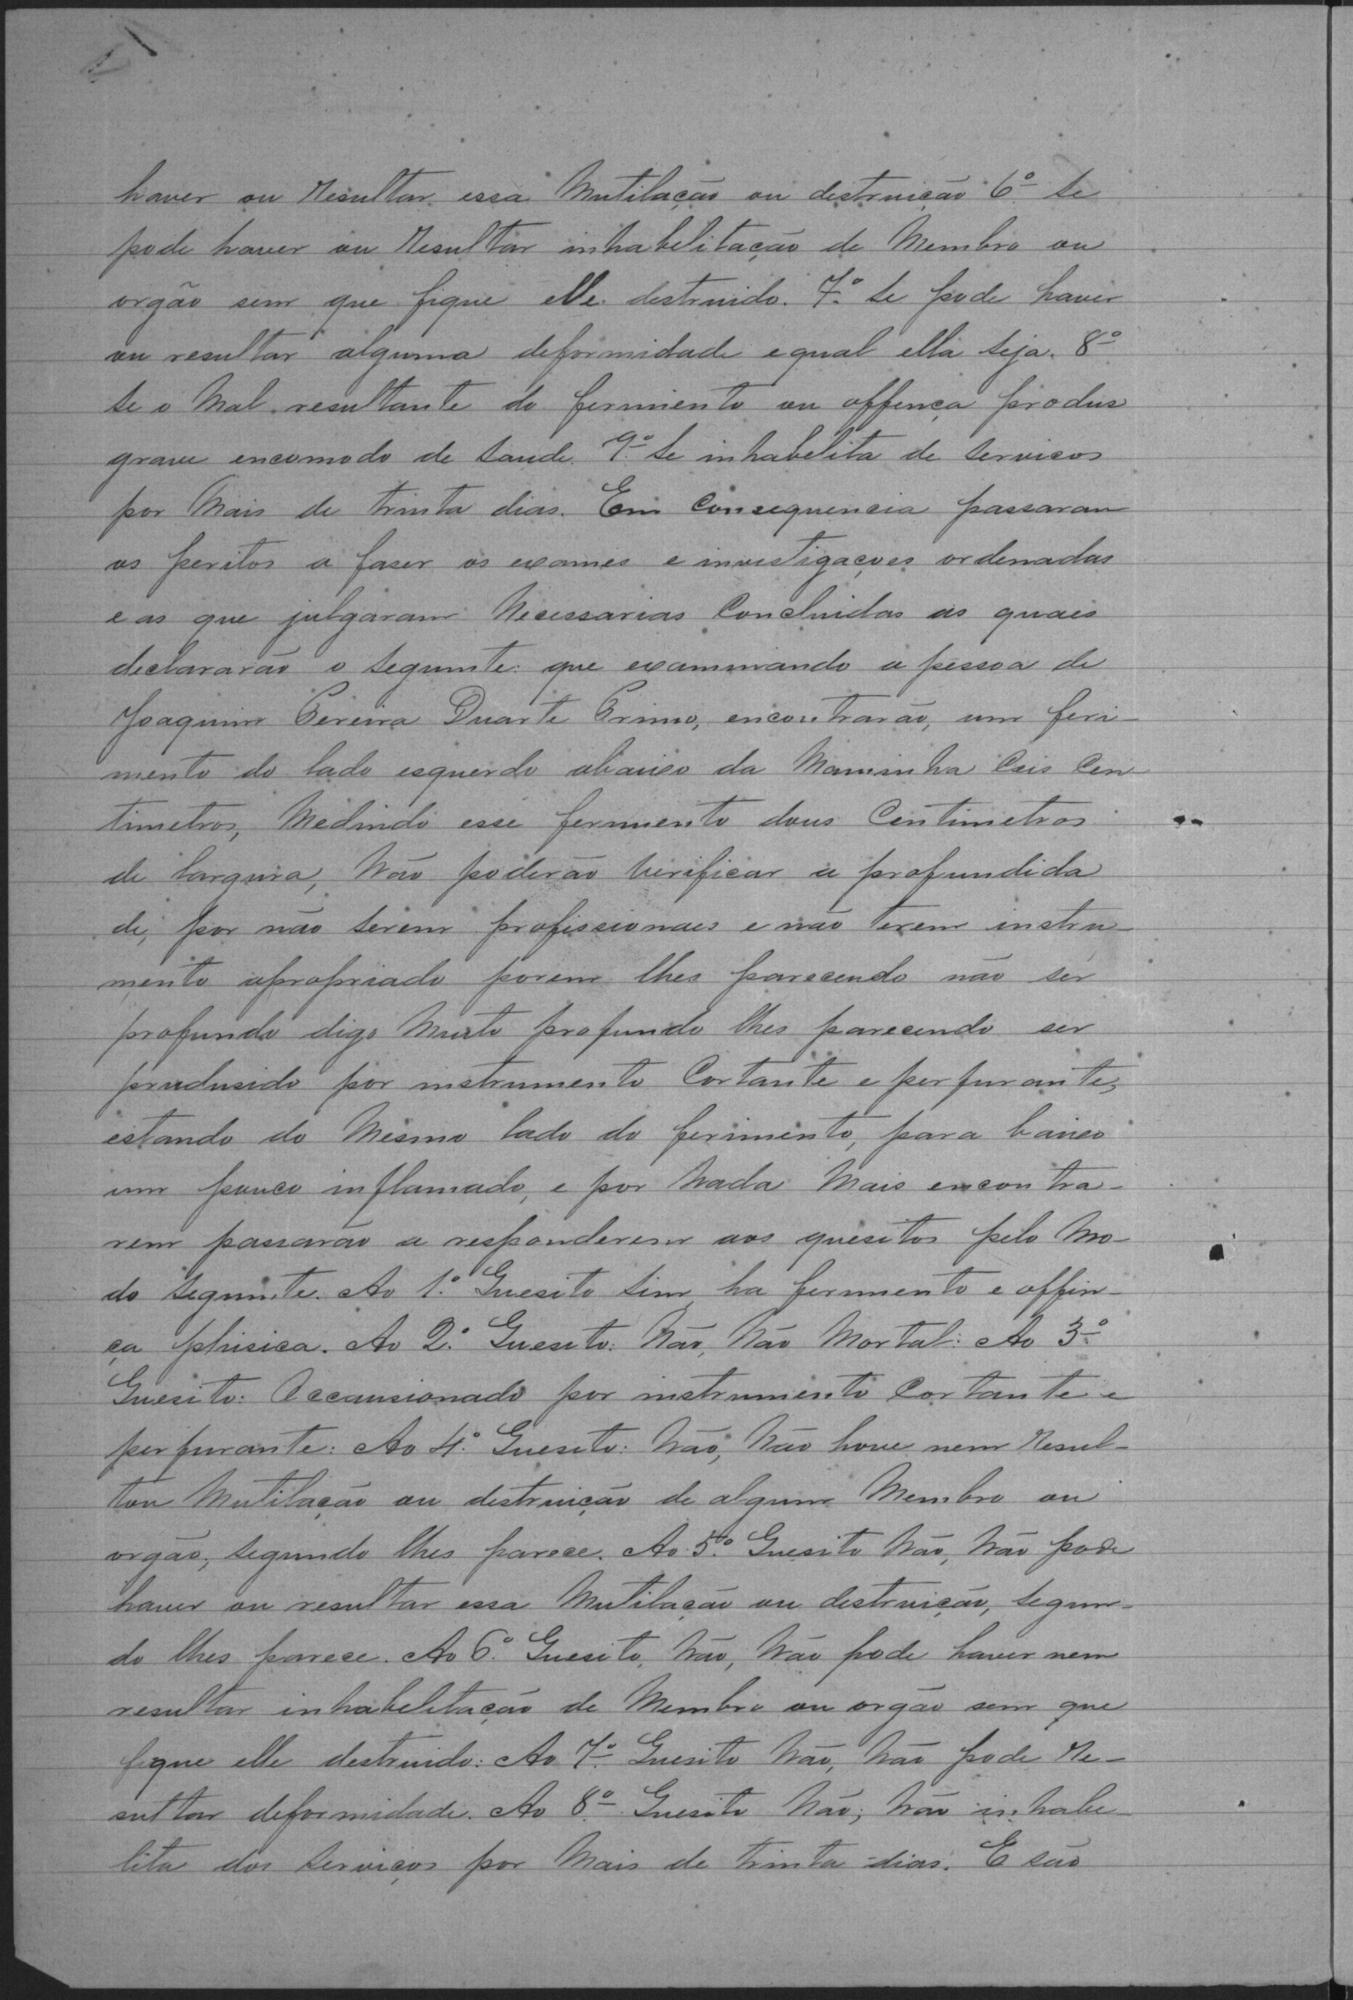 haver ou Resultar essa Mutilação ou destruição 6º Se
pode haver ou Resultar inhabelitação de Membro ou
orgão sem que fique elle destruido. 7º Se pode haver
ou resultar alguma deformidade e qual ella seja. 8º
Se o Mal resultante do ferimento ou offença produs
grave encomodo de Saude. 9º Se inhabelita de Serviços
por Mais de trinta dias. Em Consequencia passaram
os peritos a faser os exames e investigações ordenadas
e as que julgaram Necessarias Concluidas as quaes
declararão o Seguinte: que examinando a pessoa de
Joaquim Pereira Duarte Primo, encontrarão, um feri-
mento do lado esquerdo abaixo da Maminha Ceis Cen
timetros, Medindo esse ferimento dous Centimetros
de largura, Não poderão Verificar a profundida
de, por não Serem profissionaes e não terem instru-
mento apropriado porem lhes parecendo não ser
profundo digo Muito profundo lhes parecendo ser
produsido por instrumento Cortante e perfurante,
estando do Mesmo lado do ferimento, para baixo
um pouco inflamado, e por Nada Mais encontra-
rem passarão a responderem aos quesitos pelo Mo-
do Seguinte. Ao 1º Quesito Sim, ha ferimento e offen-
ça phisica. Ao 2º Quesito: Não, Não Mortal: Ao 3º
Quesito: Occausionado por instrumento Cortante e
perfurante: Ao 4º Quesito: Não, Não houve nem Resul-
tou Mutilação ou destruição de algum Membro ou
orgão, Segundo lhes parece. Ao 5º Quesito Não, Não pode
haver ou resultar essa Mutilação ou destruição, Segun-
do lhes parece. Ao 6º Quesito, Não, Não pode haver nem
resultar inhabelitação de Membro ou orgão sem que
fique elle destruido: Ao 7º Quesito Não, Não pode Re-
sultar deformidade. Ao 8º Quesito Não, Não inhabe-
lita dos Serviços por Mais de trinta dias. E são